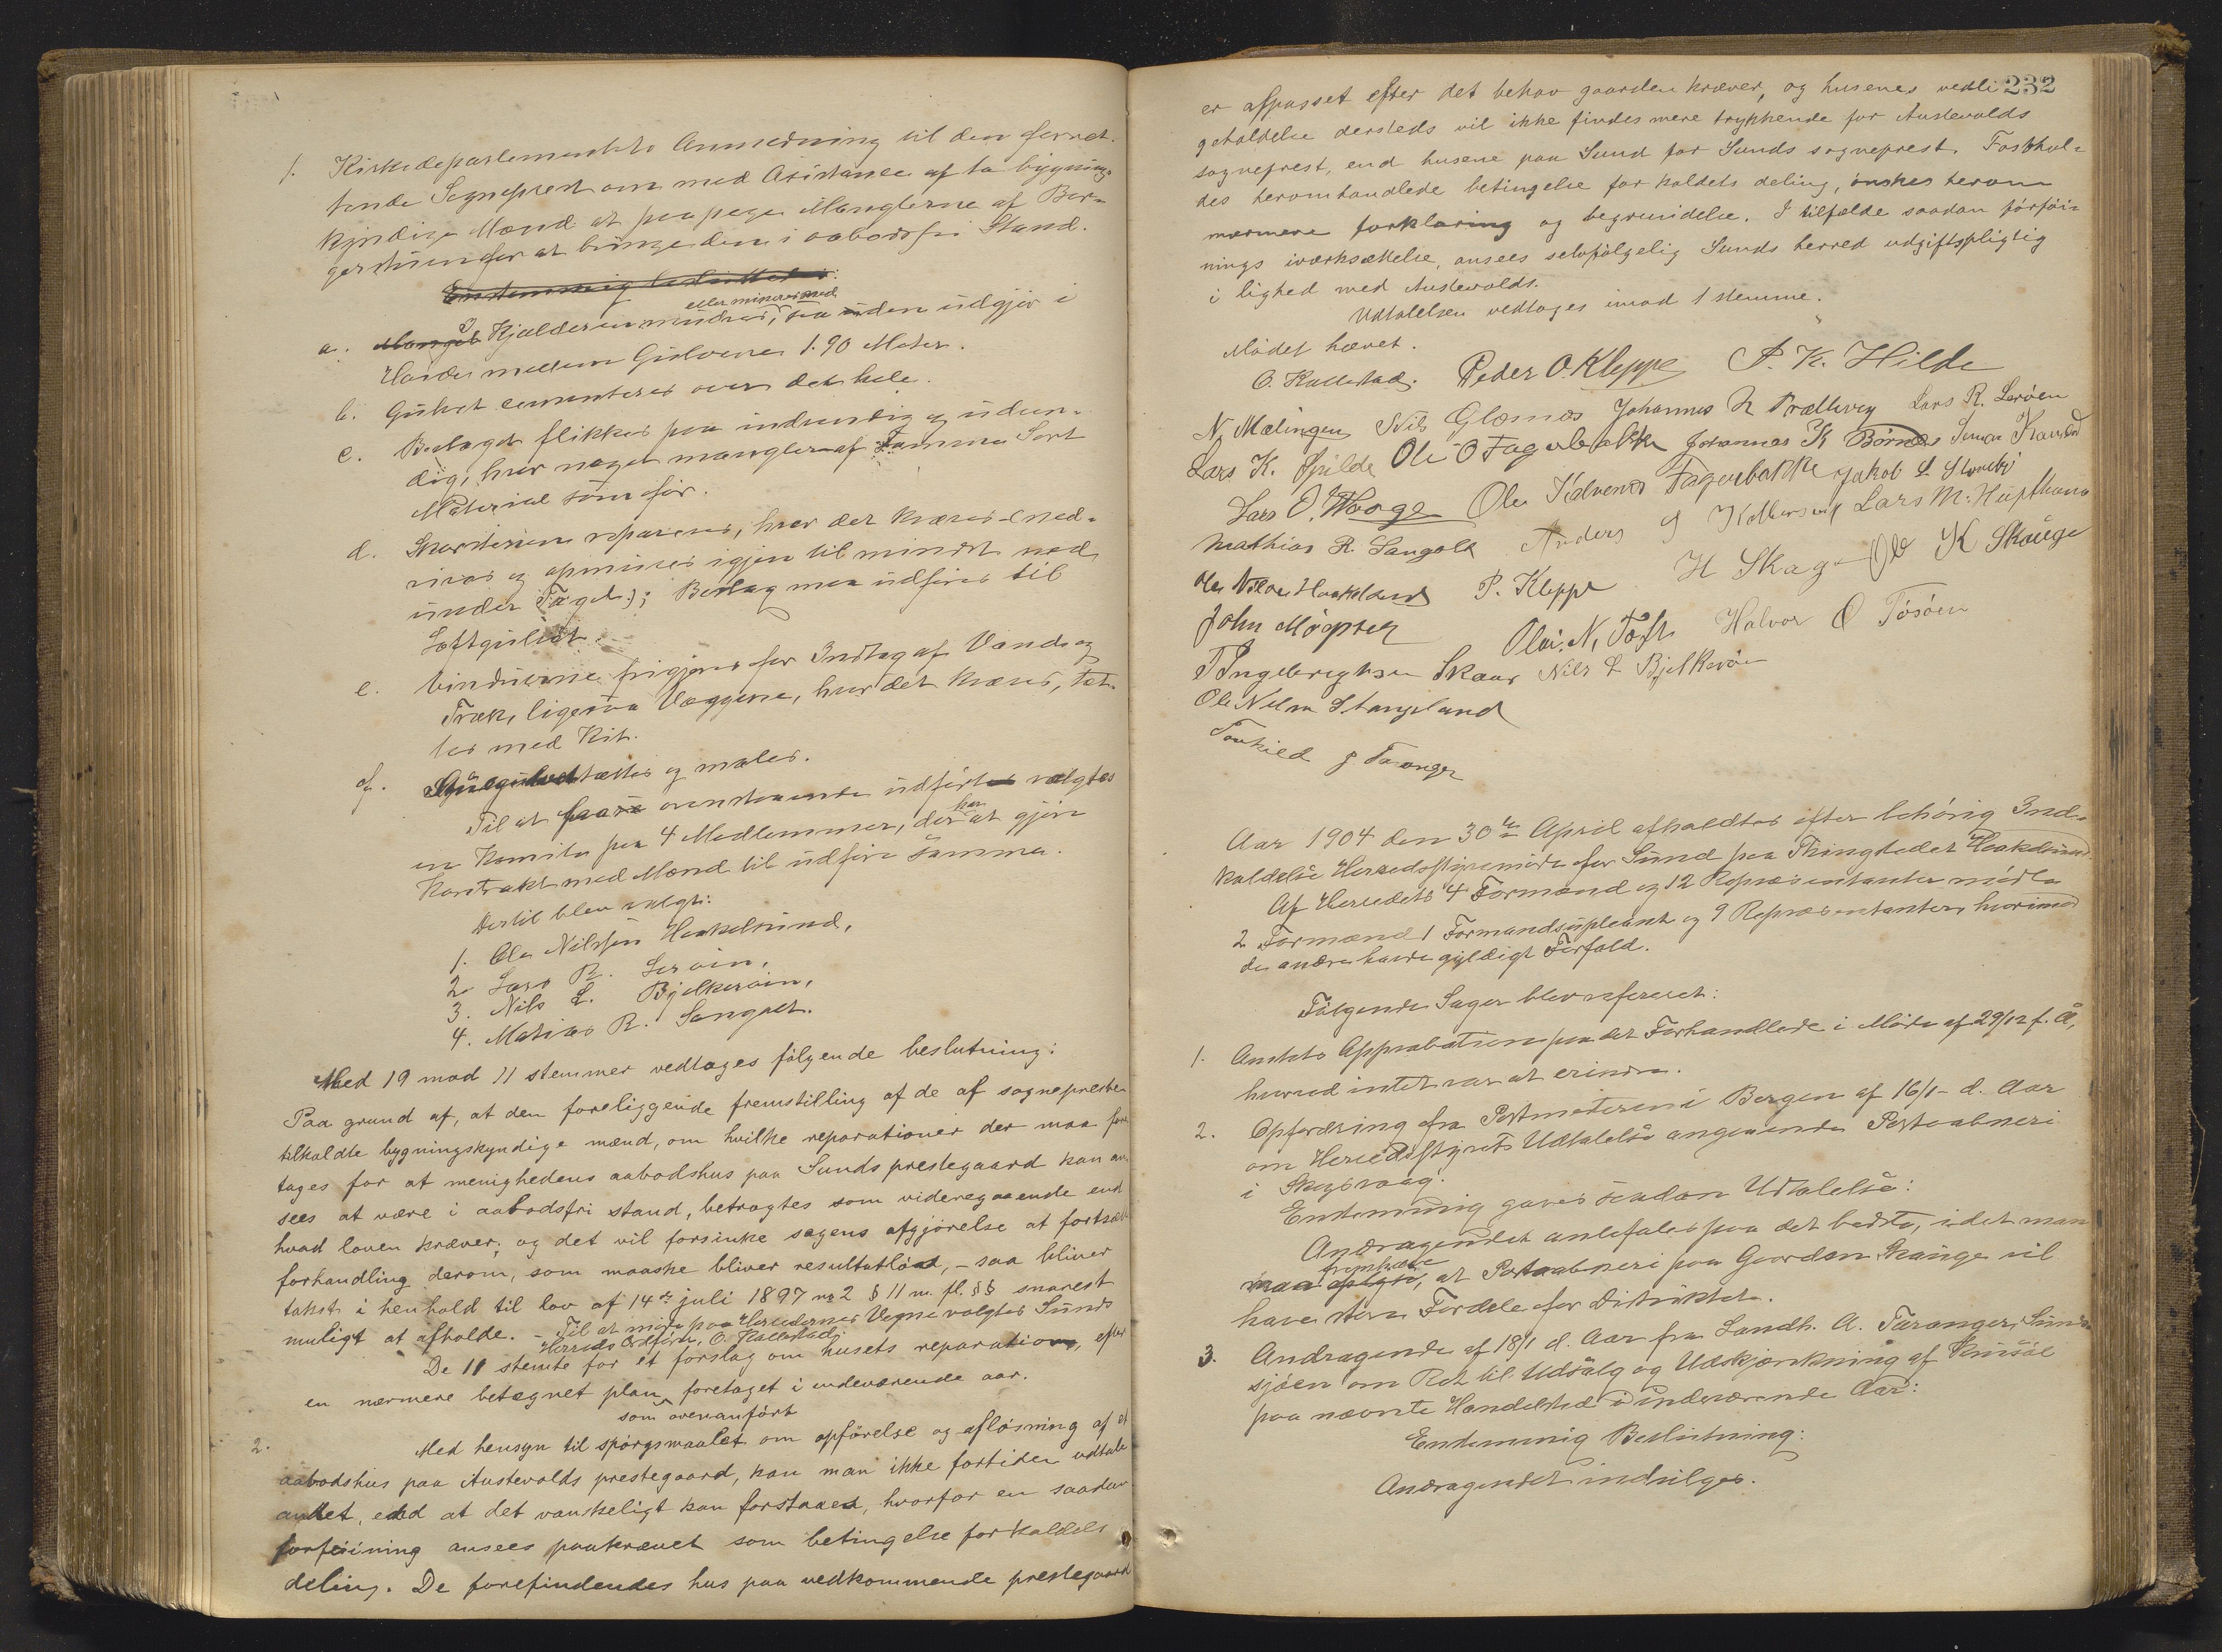 1. Kirkedepartementets Anmodning til den fornet.
tende Sogneprest om med Asistanse af to bygnings-
kyndige Mænd at paapege Manglerne af Bor-
gerstuen for at bringe den i aabodsfri Stand.
Enstemmig besluttet:
a. Kjælderen mudres, eller mineres ned, saa den udgjør i
Høide mellem Gulvene 1.90 Meter.
b. Gulvet cementeres over det hele.
c. Beslaget flikkes paa indvendig og udven-
dig, hvor noget mangler af samme Sort
Material som før.
d. Skorstenen repareres, hvor det kræves (ned-
rives og opmures igjen til mindst ned
under Taget); Beslag maa udføres til
Loftgulvet.
e. Vinduerne frigjøres for Indtag af Vand og
Træk, ligesaa Væggene, hvor det kræves, tæt-
tes med Kit.
f. tættes og males.
Til at faa ovenstaaende udført valgtes
en Komite paa 4 Medlemmer, der har at gjøre
Kontrakt med Mænd til udføre samme.
Dertil blev valgt:
1. Ole Nilssen Hakelsund,
2 Lars R. Lerøen,
3. Nils L. Bjelkerøen,
4. Matias R. Sangolt.
Med 19 mod 11 stemmer vedtages følgende beslutning:
Paa grund af, at den foreliggende fremstilling af de af sognepresten
tilkaldte bygningskyndige mænd, om hvilke reparationer der maa fore
tages for at menighedens aabodshus paa Sunds prestegaard kan an
sees at være i aabodsfri stand, betragtes som videregaaende end
hvad loven kræver; og det vil forsinke sagens afgjørelse at fortsætte
forhandling derom, som maaske bliver resultatløst, – saa bliver
takst i henhold til lov af 14de juli 1897 no 2 § 11 m. fl. §§ snarest
muligt at afholde. – Til at møde paa Herredernes Vegne valgtes Sunds
Herreds Ordfører, O. Kallestad.
De 11 stemte for et forslag om husets reparation, efter
en nærmere betegnet plan som ovenanført foretaget i indeværende aar.
2. Med hensyn til spørgsmaalet om opførelse og afløsning af et
aabodshus paa Austevolds prestegaard, kan man ikke fortiden udtale
andet, end at det vanskeligt kan forstaaes, hvorfor en saadan
forføining ansees paakrævet som betingelse for kaldets
deling. De forefindendes hus paa vedkommende prestegaard
232
er afpasset efter det behov gaarden kræver, og husenes vedli
geholdelse dersteds vil ikke findes mere trykkende for Austevolds
sogneprest, end husene paa Sund for Sunds sogneprest. Fasthol-
des heromhandlede betingelse for kaldets deling, ønskes herom
nærmere forklaring og begrundelse. I tilfælde saadan forføi-
nings iværksættelse, ansees selvfølgelig Sunds herred udgiftspligtig
i lighed med Austevolds.
Udtalelsen vedtages imod 1 stemme.
Mødet hævet.
O. Kallestad. Peder O. Kleppe P. K. Hilde
N Mælingen Nils Glesnæs Johannes N Trællevig Lars R. Lerøen
Lars K. Spilde Ole O Fagerbakke Johannes K Børnæs
Lars O. Waage Ole Fagerbakke Jakob
Mathias R. Sangolt Anders Lars M. Hufthammer
Ole Nilsen Haakelsund P. Kleppe H Skage Ole K Skauge
John Møgster Olai. N. Toft Halvor O Tøsøen
T Ingebrigtsen Skaar Nils L Bjelkerøen
Ole Nilsen Stangeland
Torkild J Taranger
Aar 1904 den 30te April afholdtes efter lovlig Ind-
kaldelse Herredsstyremøde for Sund paa Thingstedet Hakelsund.
Af Herredets 4 Formænd og 12 Repræsentanter mødte
2 Formænd 1 Formandsupleant og 9 Repræsentanter, hvorimod
de andre havde gyldigt Forfald.
Følgende Sager blev refereret:
1. Amtets Approbation paa det Forhandlede i Møde af 29/12 f. A,
hvorved intet var at erindre.
2. Opfordring fra Postmesteren i Bergen af 16/1 d. Aar
om Herredsstyrets Udtalelse angaaende Postaabneri
i Skogsvaag.
Enstemmig gaves saadan Udtalelse:
Andragendet anbefales paa det bedste, idet man
maa fremhæve, at Postaabneri paa Gaarden Skauge vil
have store Fordele for Distriktet.
3. Andragende af 18/1 d. Aar fra Landh. A. Taranger, Sunds-
sjøen om Ret til Udsalg og Udskjænkning af
paa nævnte Handelsted i indeværende Aar:
Enstemmig Beslutning:
Andragendet indvilges.